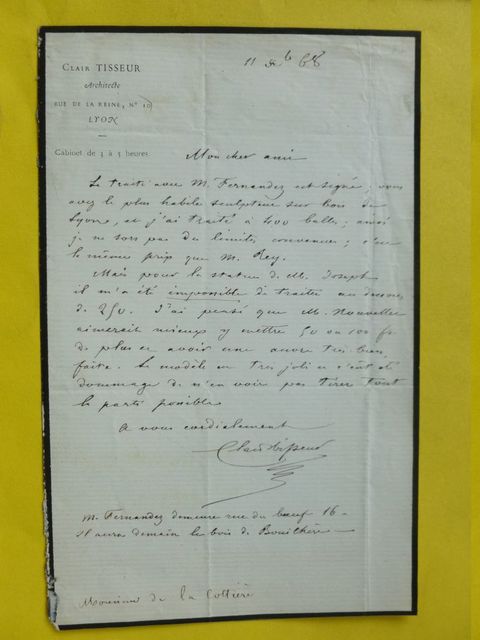 CLAIR TISSEUR
Architecte
RUE DE LA REINE, No 10
LYON
Cabinet de 3 à 5 heures
11 Xbre 68
Mon cher ami
Le traité avec M. Fernandez est signé ; vous
avez le plus habile sculpteur sur bois de
Lyon, et j'ai traité à 400 balles ; ainsi
je ne sors pas des limites convenues ; c'est
le même prix que M. Rey.
Mais pour la statue de M. Joseph
il m'a été impossible de traiter au dessous
de 250. J'ai pensé que M.
aimerait mieux y mettre 50 ou 100 fr
de plus et avoir une œuvre très bien
faite. Le modèle est très joli et c'eut été
dommage de n'en voir pas tirer tout
le parti possible
A vous cordialement
Clair Tisseur
M. Fernandez demeure rue du bœuf 16 -
Il aura demain le bois de
Monsieur de la Coltière